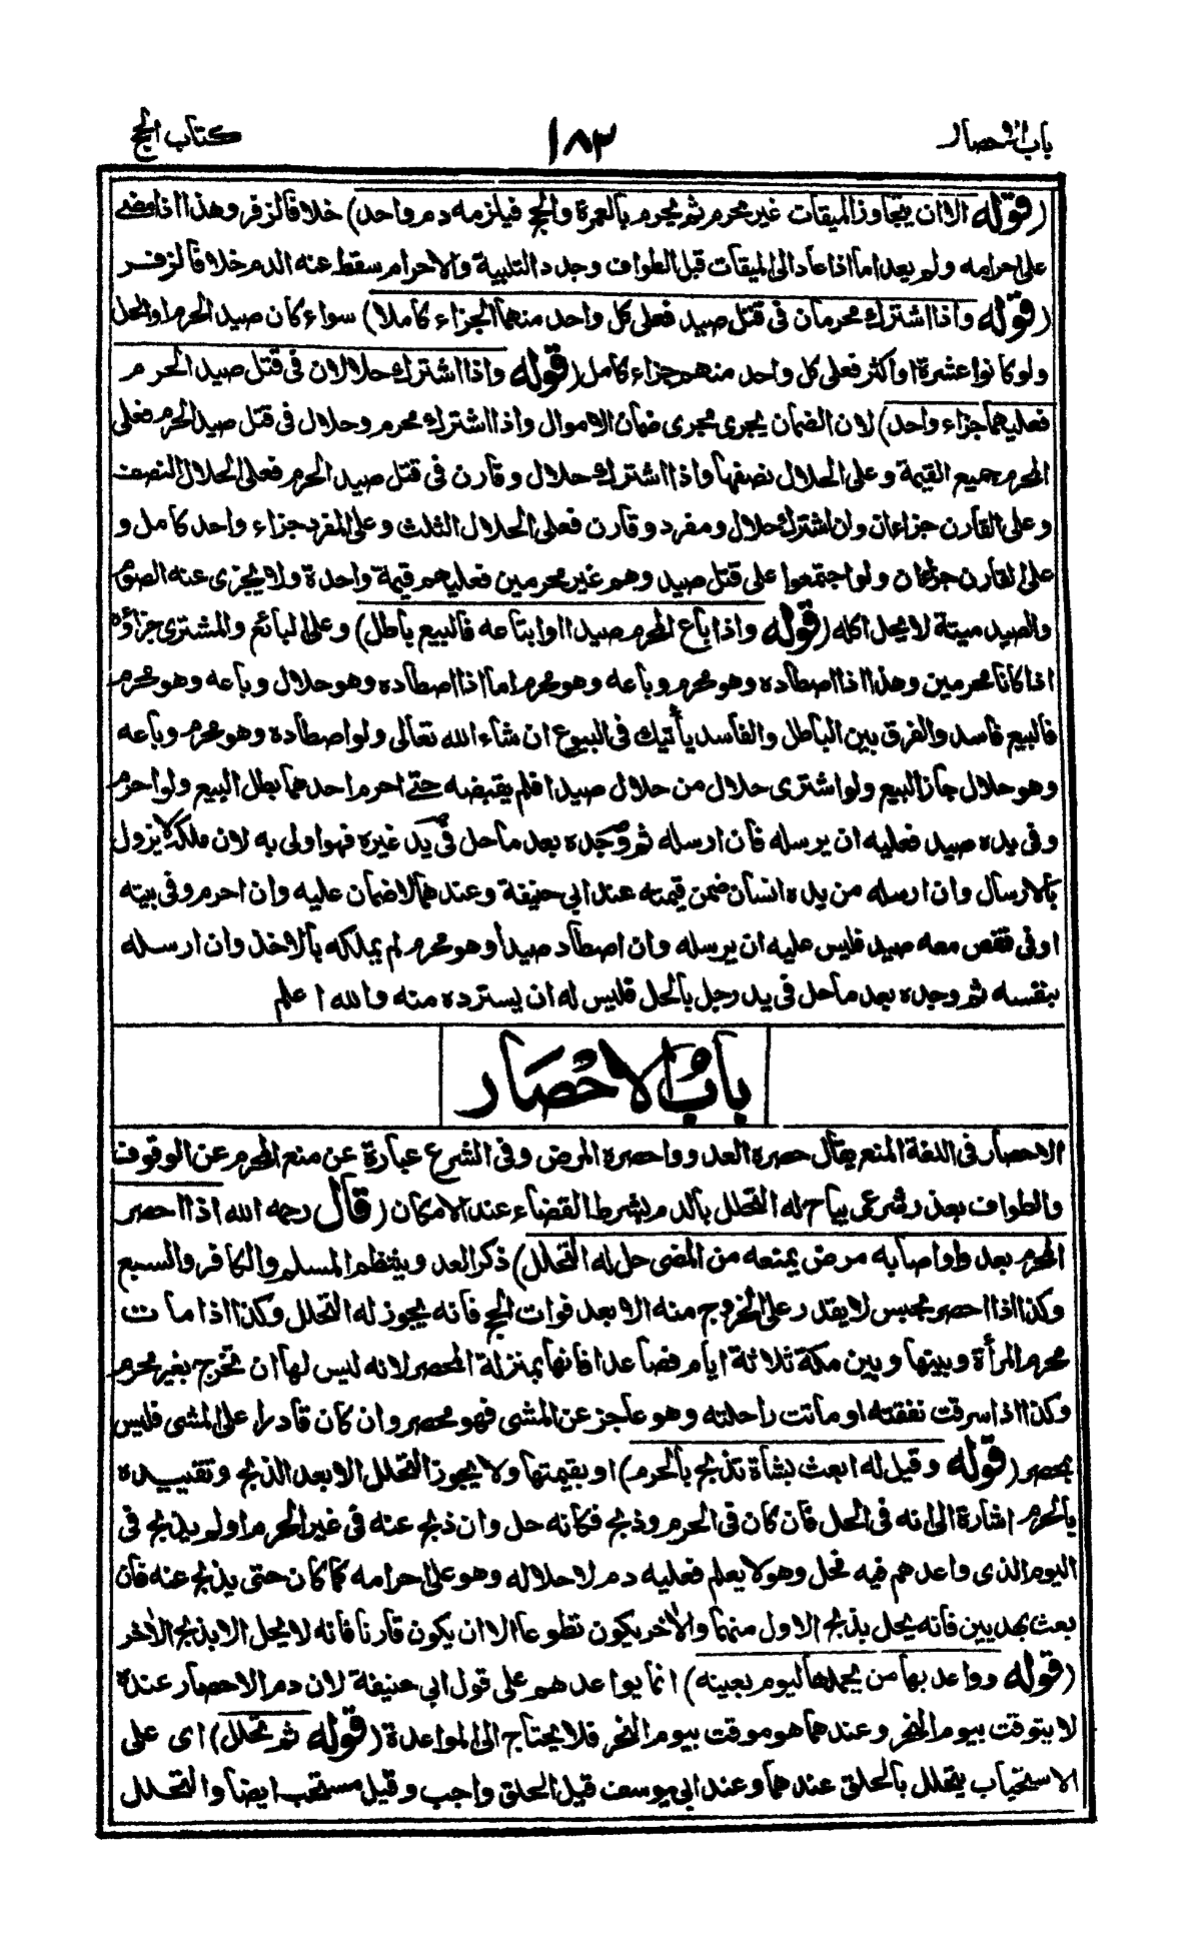 باب الاحصار
١٨٢
كتاب الحج
(قوله الا ان يتجاوز الميقات غير محرم ثم يحرم بالعمرة والحج فيلزمه دم واحد) خلافا لزفر وهذا اذا مضى
على احرامه ولم يعد اما اذا عاد الى الميقات قبل الطواف وجدد التلبية والاحرام سقط عنه الدم خلافا لزفر
(قوله واذا اشترك محرمان فى قتل صيد فعلى كل واحد منهما الجزاء كاملا) سواء كان صيد الحرم او الحل
ولو كانوا عشرة او اكثر فعلى كل واحد منهم جزاء كامل (قوله واذا اشترك حلالان فى قتل صيد الحرم
فعليهما جزاء واحد) لان الضمان يجرى مجرى ضمان الاموال واذا اشترك محرم وحلال فى قتل صيد الحرم فعلى
المحرم جميع القيمة وعلى الحلال نصفها واذا اشترك حلال وقارن فى قتل صيد الحرم فعلى الحلال النصف
وعلى القارن جزاءان وان اشترك حلال ومفرد وقارن فعلى الحلال الثلث وعلى المفرد جزاء واحد كامل و
على القارن جزاءان ولو اجتمعوا على قتل صيد وهم غير محرمين فعليهم قيمة واحدة ولا يجزى عنه الصوم
والصيد ميتة لا يحل اكله (قوله واذا باع المحرم صيدا او ابتاعه فالبيع باطل) وعلى البائع والمشترى جزاؤه
اذا كانا محرمين وهذا اذا اصطاده وهو محرم وباعه وهو محرم اما اذا اصطاده وهو حلال وباعه وهو محرم
فالبيع فاسد والفرق بين الباطل والفاسد يأتيك فى البيوع ان شاء الله تعالى ولو اصطاده وهو محرم وباعه
وهو حلال جاز البيع ولو اشترى حلال من حلال صيدا فلم يقبضه حتى احرم احدهما بطل البيع ولو احرم
وفى يده صيد فعليه ان يرسله فان ارسله ثم وجده بعد ما حل فى يد غيره فهو اولى به لان ملكه لا يزول
بالارسال وان ارسله من يده انسان ضمن قيمته عند ابي حنيفة وعندهما لا ضمان عليه وان احرم وفى بيته
او فى قفص معه صيد فليس عليه ان يرسله وان اصطاد صيدا وهو محرم لم يملكه بالاخذ وان ارسله
بنفسه ثم وجده بعد ما حل فى يد رجل بالحل فليس له ان يسترده منه والله اعلم
باب الاحصار
الاحصار فى اللغة المنع يقال حصره العدو واحصره المرض وفى الشرع عبارة عن منع المحرم عن الوقوف
والطواف بعذر شرعى يباح له التحلل بالدم بشرط القضاء عند الامكان (قال رحمه الله اذا احصر
المحرم بعدو او اصابه مرض يمنعه من المضى حل له التحلل) ذكر العدو ينتظم المسلم والكافر والسبع
وكذا اذا احصر بمحبس لا يقدر على الخروج منه الا بعد فوات الحج فانه يجوز له التحلل وكذا اذا مات
محرم المرأة وبينها وبين مكة ثلاثة ايام فصاعدا فانها بمنزلة المحصر لانه ليس لها ان تخرج بغير محرم
وكذا اذا سرقت نفقته او ماتت راحلته وهو عاجز عن المشى فهو محصر وان كان قادرا على المشى فليس
بمحصر (قوله وقيل له ابعث بشاة تذبح بالحرم) او بقيمتها ولا يجوز التحلل الا بعد الذبح وتقييده
بالحرم اشارة الى انه فى الحل فان كان فى الحرم وذبح فكانه حل وان ذبح عنه فى غير الحرم او لم يذبح فى
اليوم الذى واعدهم فيه فحل وهو لا يعلم فعليه دم لاحلاله وهو على احرامه كما كان حتى يذبح عنه فان
بعث بهديين فانه يحل بذبح الاول منهما والآخر يكون تطوعا الا ان يكون قارنا فانه لا يحل الا بذبح الآخر
(قوله وواعد بها من يحملها ليوم بعينه) انما يواعدهم على قول ابي حنيفة لان دم الاحصار عنده
لا يتوقت بيوم النحر وعندهما هو موقت بيوم النحر فلا يحتاج الى المواعدة (قوله ثم تحلل) اى على
الاستحباب يتحلل بالحلق عندهما وعند ابي يوسف قيل الحلق واجب وقيل مستحب ايضا والتحلل